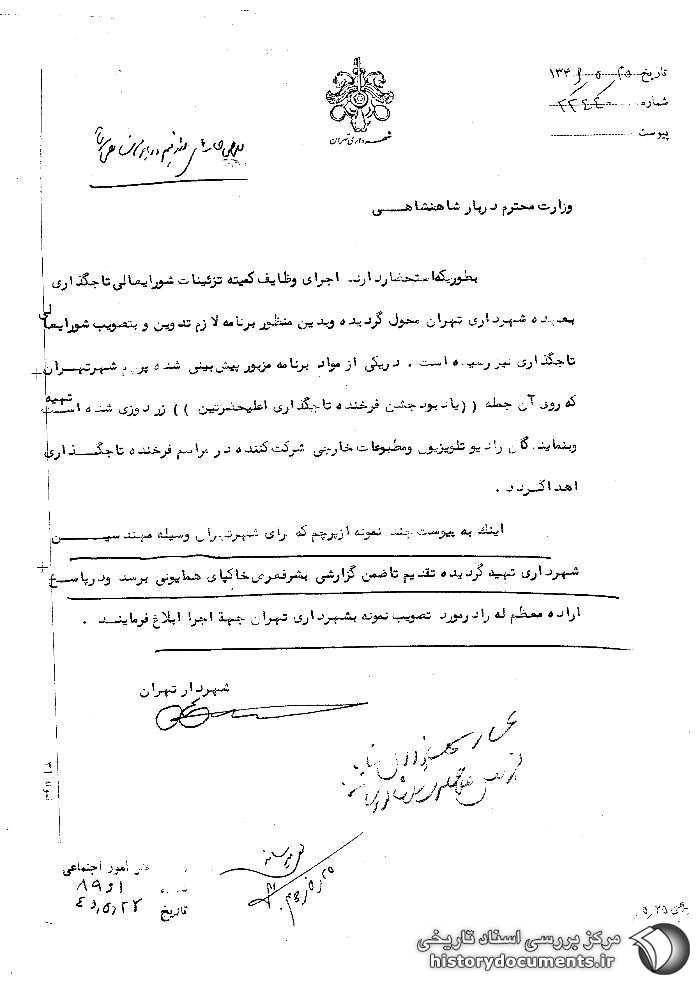 تاریخ ۲۵ـ۵ـ۱۳۴۶
شماره ۲۲۴۴۰
پیوست
شهرداری تهران
وزارت محترم دربار شاهنشاهـــی
بطوریکه استحضار دارند اجرای وظایف کمیته تزئینات شورایعالی تاجگذاری
بعهده شهرداری تهران محول گردیده وبدین منظور برنامه لازم تدوین و بتصویب شورایعالی
تاجگذاری نیز رسیده است . دریکی از مواد برنامه مزبور پیش بینی شده پرچم شهرتهران تهیه
که روی آن جمله ((یاد بود جشن فرخنده تاجگذاری اعلیحضرتین )) زردوزی شده است
وبنمایندگان رادیو تلویزیون ومطبوعات خارجی شرکت کننده در مراسم فرخنده تاجگـــذاری
اهدا گـردد .
اینك به پیوست چند نمونه ازپرچم که برای شهرتهران وسیله مهندسیـــن
شهرداری تهیه گردیده تقدیم تاضمن گزارشی بشرفعرض خاکپای همایونی برسد ودرپاســخ
اراده معظم له رادرمورد تصویب نمونه بشهرداری تهران جهة اجرا ابلاغ فرماینــد .
شهردار تهران
امور اجتماعی
۸۹۱۶
تاریخ ۴۶٫۵٫۲۷
مرکز بررسی اسناد تاریخی
historydocuments.ir